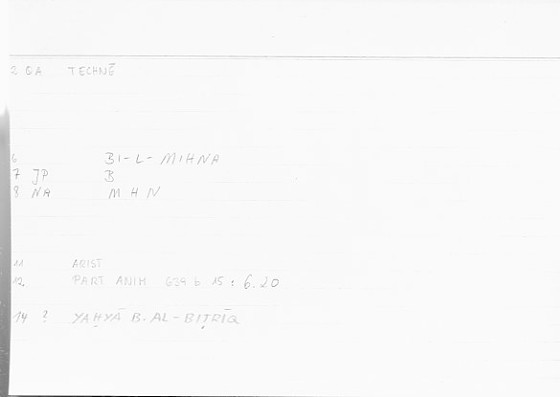 2 QA TECHNĒ
6 BI-L-MIHNA
7 JP B
8 NA MHN
11 ARIST
12. PART ANIM 639 b 15 : 6.20
14 ? YAḤYĀ B. AL-BIṬRĪQ